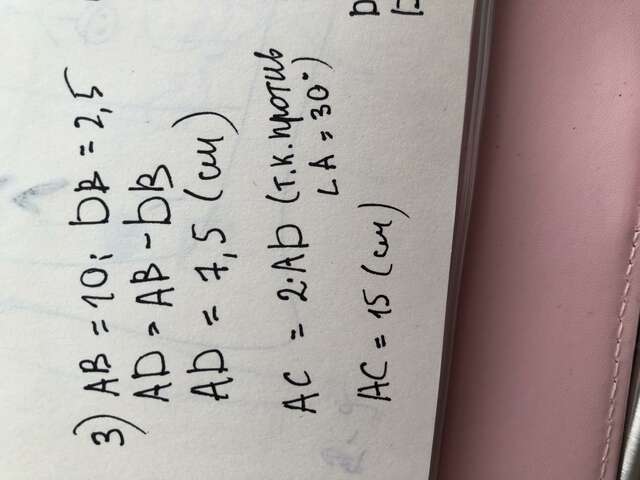 3) AB = 10; DB = 2,5
AD = AB - DB
AD = 7,5 (см)
AC = 2·AD (т.к. против
∠A = 30°)
AC = 15 (см)